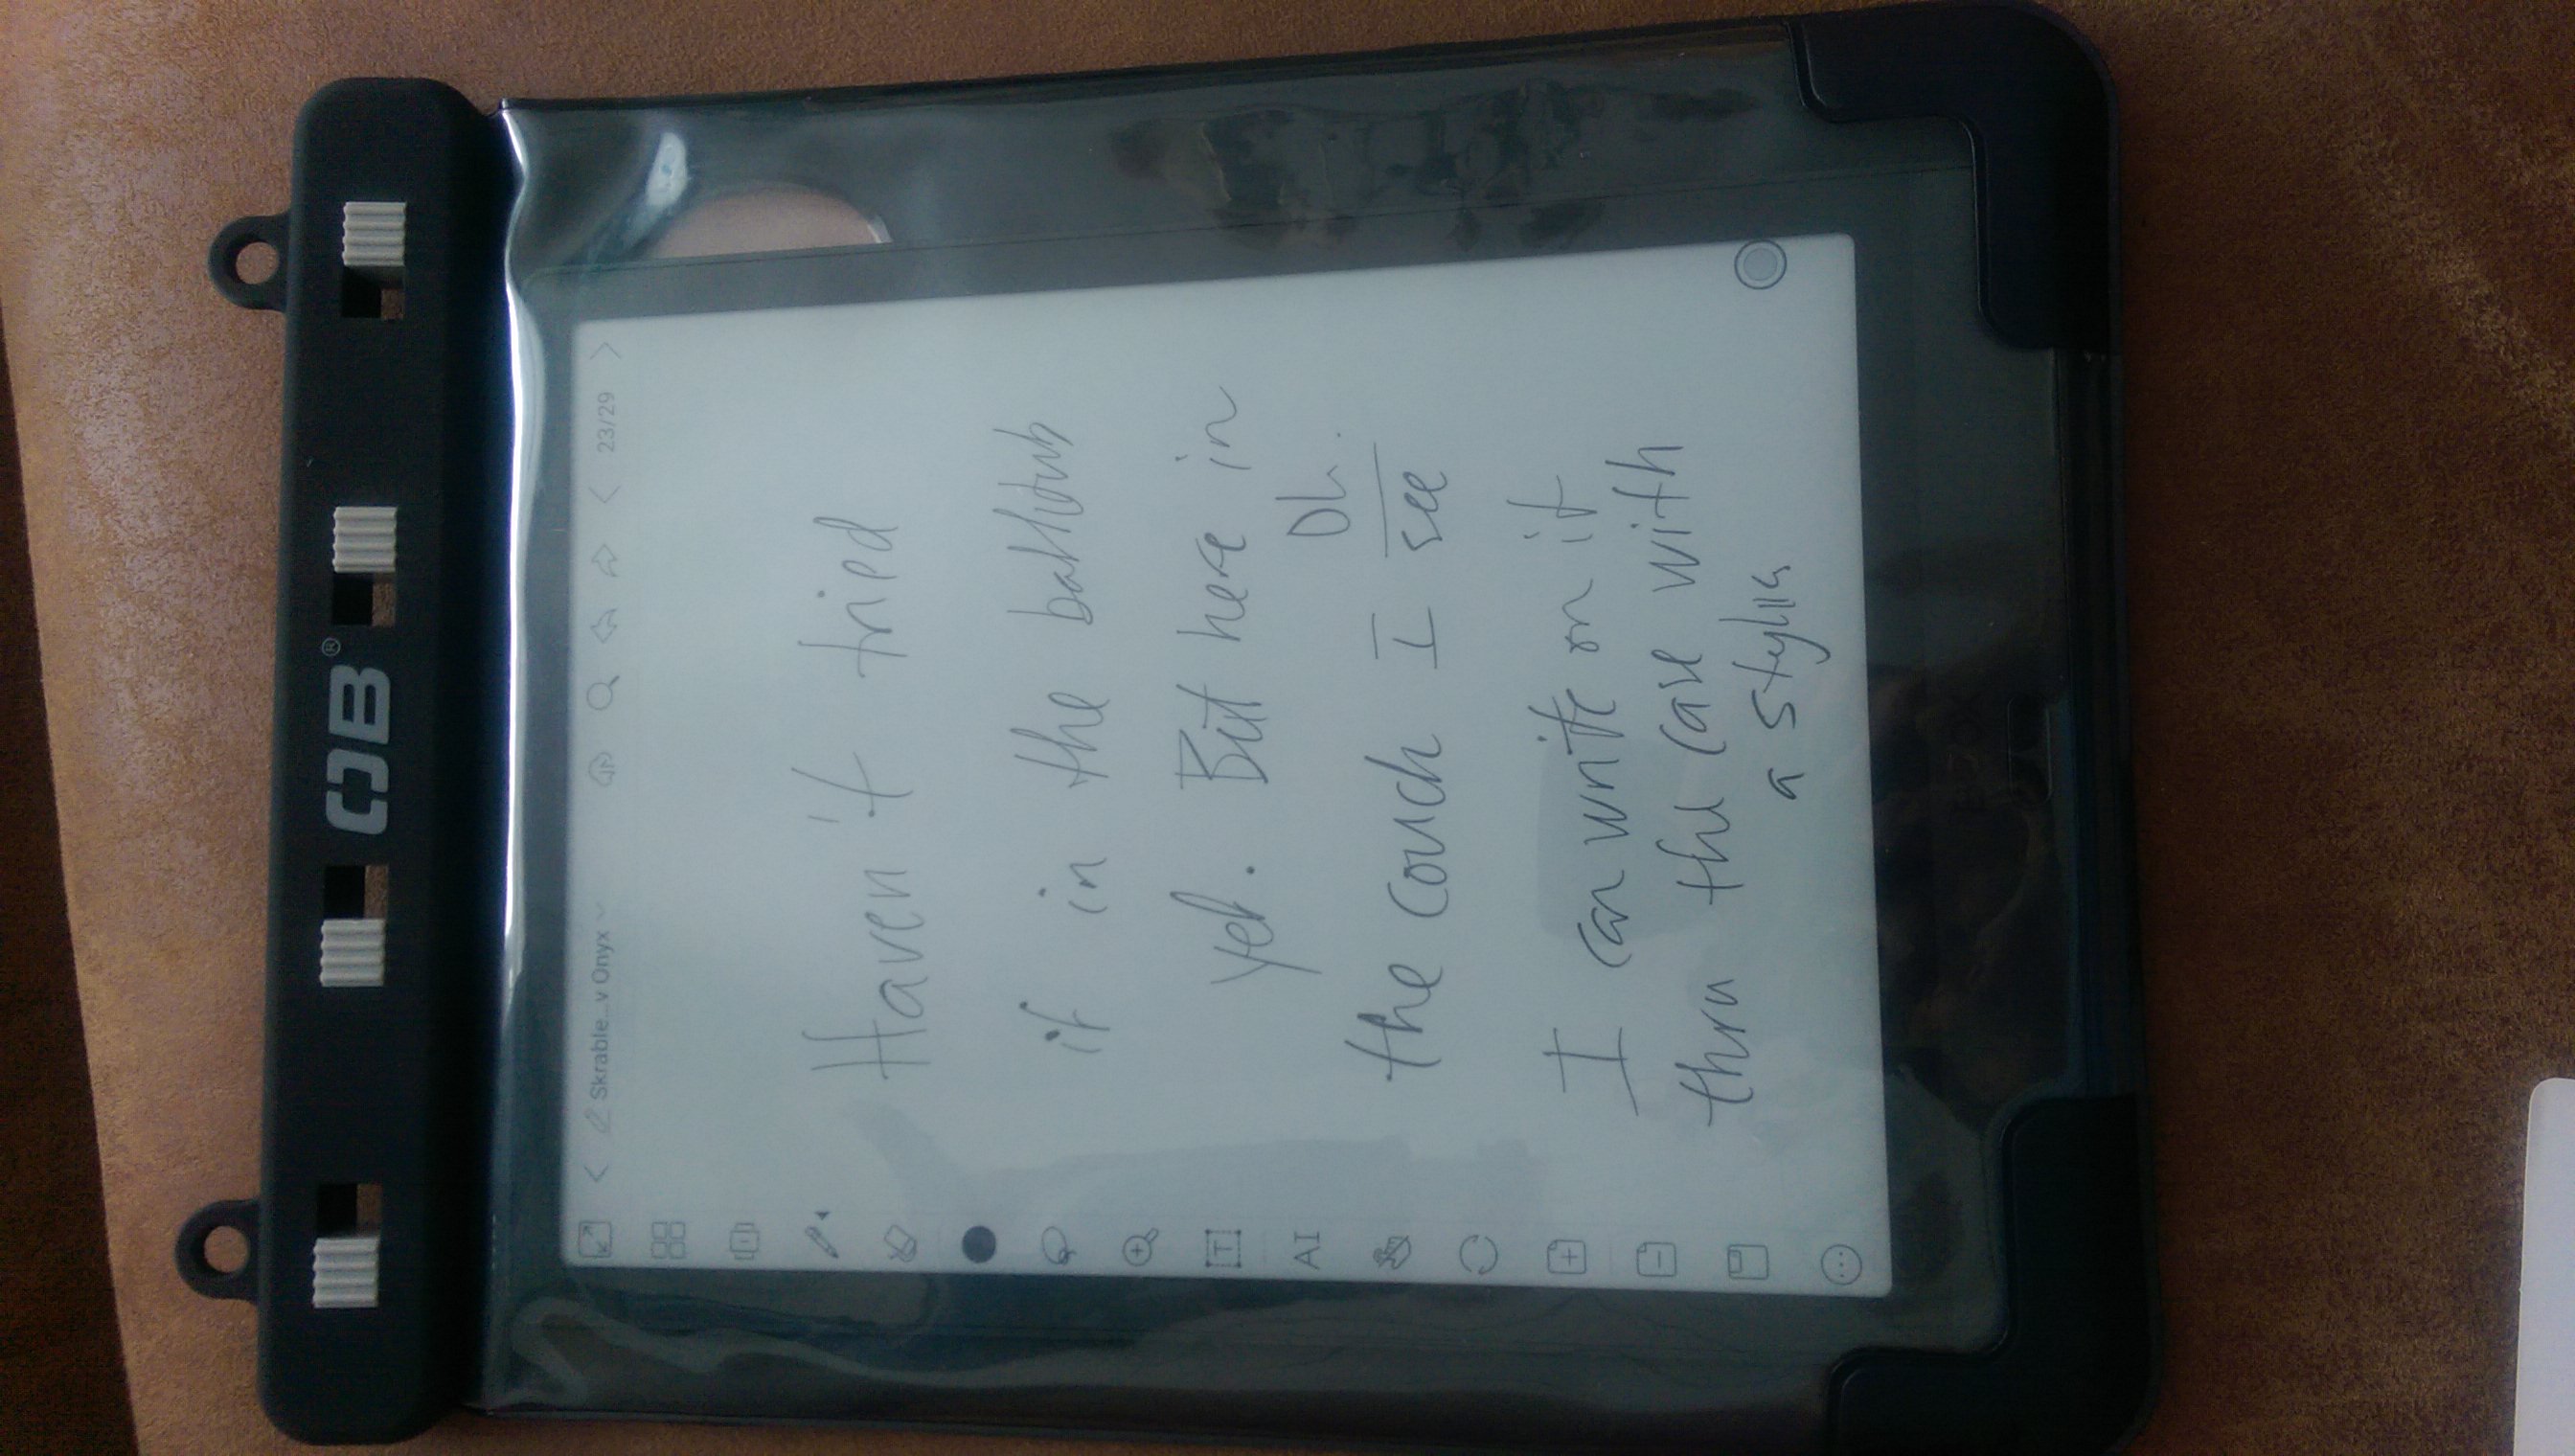 OB®
Skrable...v Onyx
23/29
Haven't tried
it in the bathtub
yet. But here in
the couch I see
Oh.
I can write on it
thru the case with
a stylus
T
AI